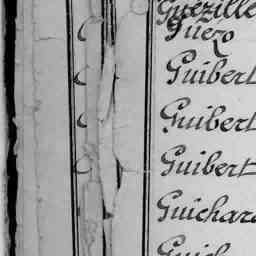 Guezille
Guezo
Guibert
Guibert
Guibert
Guichar